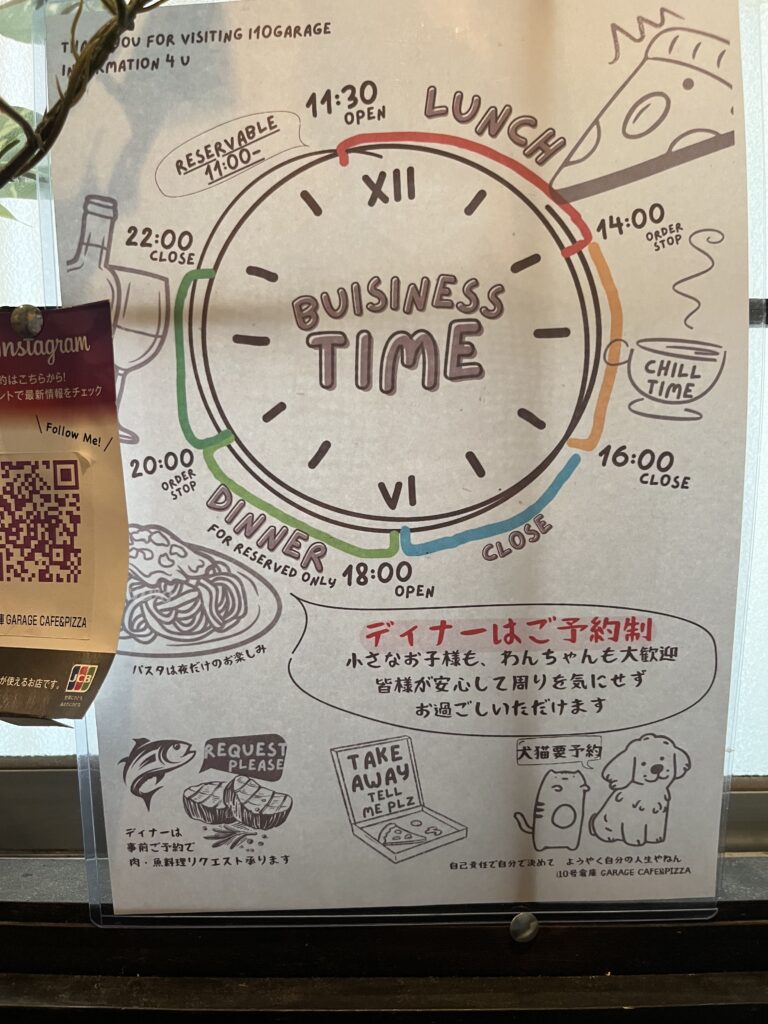 THANK YOU FOR VISITING I10GARAGE
INFORMATION 4 U
11:30
OPEN
LUNCH
RESERVABLE
11:00-
XII
14:00
ORDER
STOP
22:00
CLOSE
BUISINESS
TIME
CHILL
TIME
Instagram
約はこちらから!
ントで最新情報をチェック
Follow Me!
20:00
ORDER
STOP
16:00
CLOSE
VI
DINNER
FOR RESERVED ONLY
18:00
OPEN
CLOSE
庫 GARAGE CAFE&PIZZA
が使えるお店です。
JCB
パスタは夜だけのお楽しみ
ディナーはご予約制
小さなお子様も、わんちゃんも大歓迎
皆様が安心して周りを気にせず
お過ごしいただけます
REQUEST
PLEASE
TAKE
AWAY
TELL
ME PLZ
犬猫要予約
ディナーは
事前ご予約で
肉・魚料理リクエスト承ります
自己責任で自分で決めて ようやく自分の人生やねん
i10号倉庫 GARAGE CAFE&PIZZA